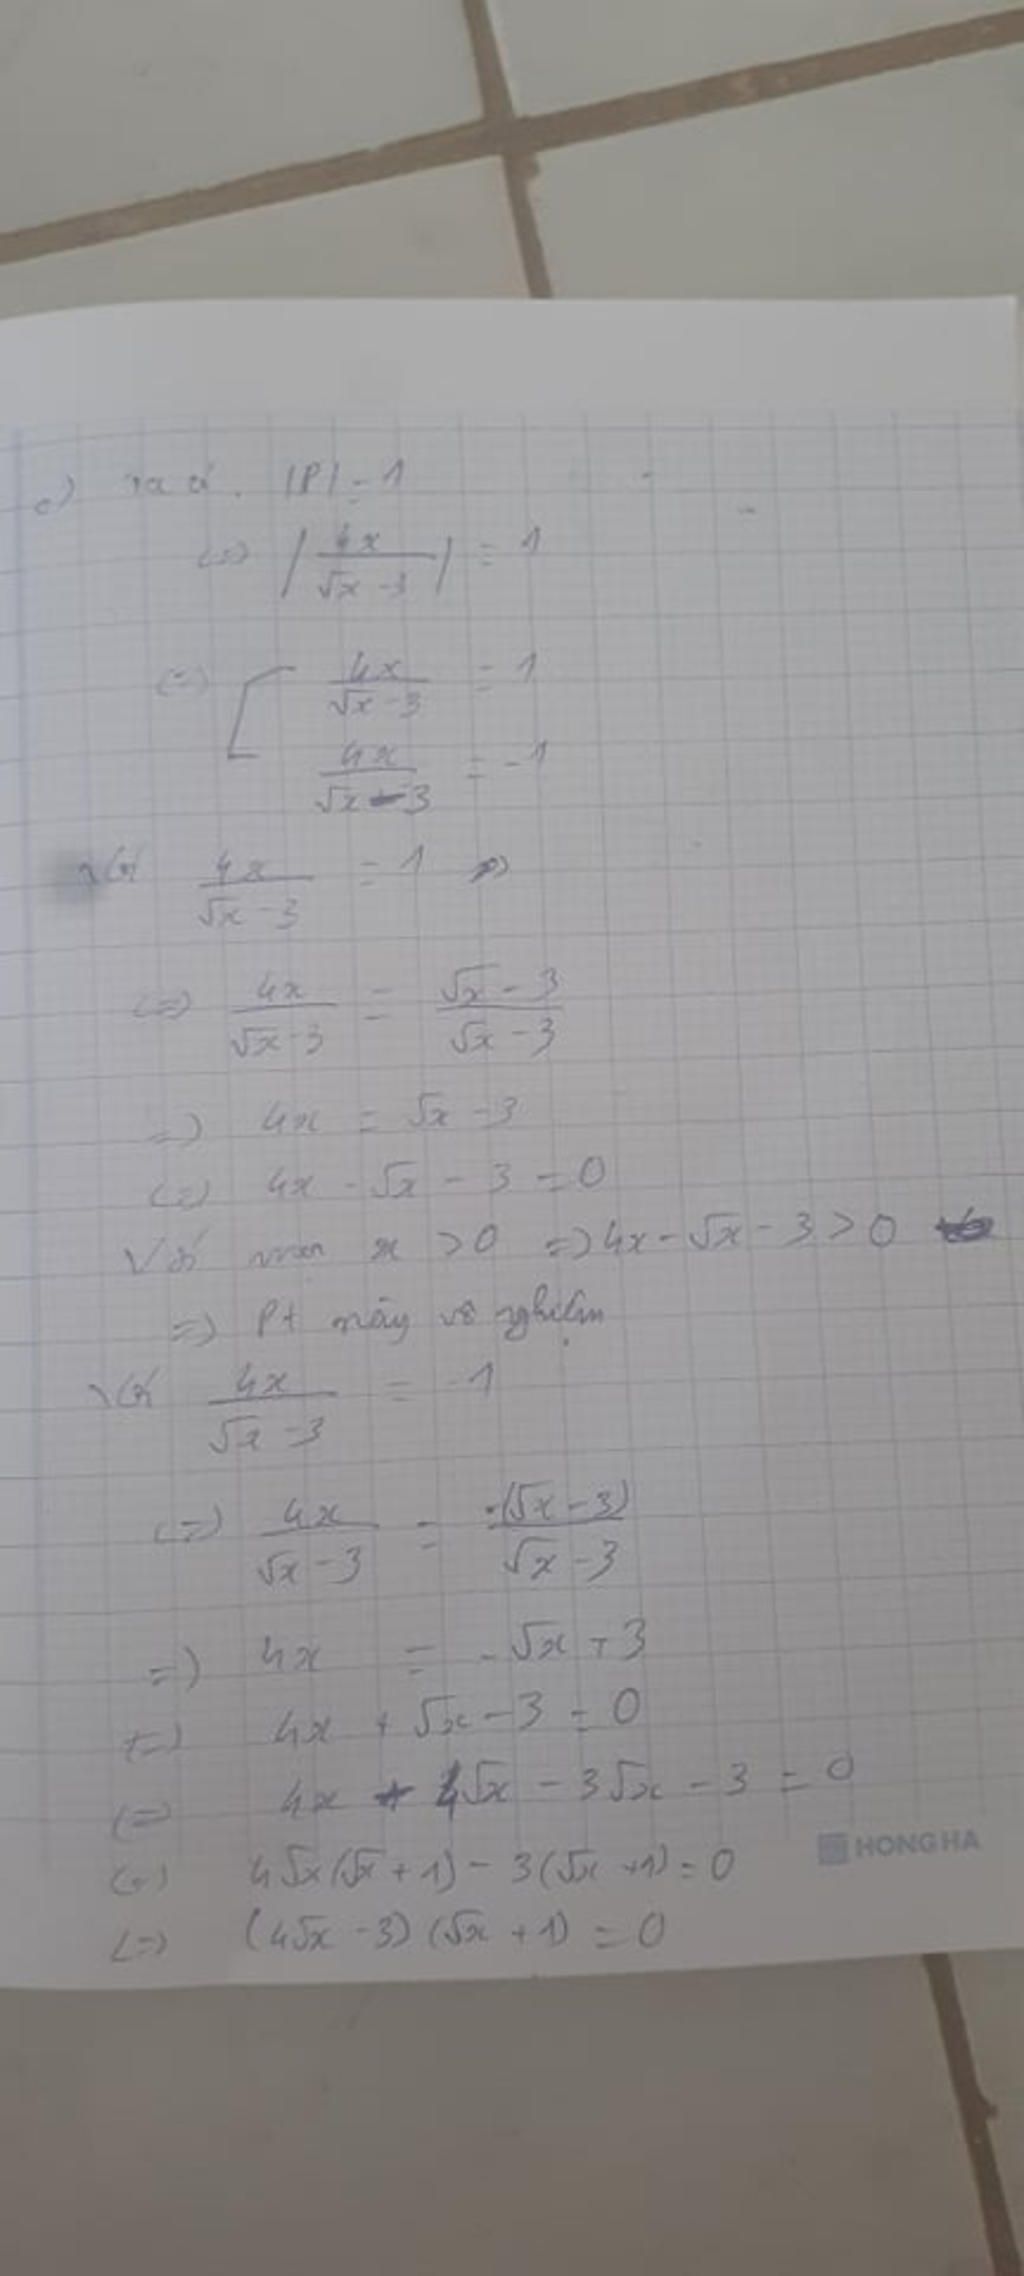 c) Ta có. |P| = 1
<=> |4x/(√x - 3)| = 1
<=> [ 4x/(√x - 3) = 1
4x/(√x - 3) = -1
với 4x/(√x - 3) = 1
<=> 4x/(√x - 3) = (√x - 3)/(√x - 3)
=> 4x = √x - 3
<=> 4x - √x - 3 = 0
Với x > 0 => 4x - √x - 3 > 0
=> Pt này vô nghiệm
với 4x/(√x - 3) = -1
<=> 4x/(√x - 3) = -(√x - 3)/(√x - 3)
=> 4x = -√x + 3
<=> 4x + √x - 3 = 0
<=> 4x + 4√x - 3√x - 3 = 0
HONG HA
<=> 4√x(√x + 1) - 3(√x + 1) = 0
<=> (4√x - 3)(√x + 1) = 0